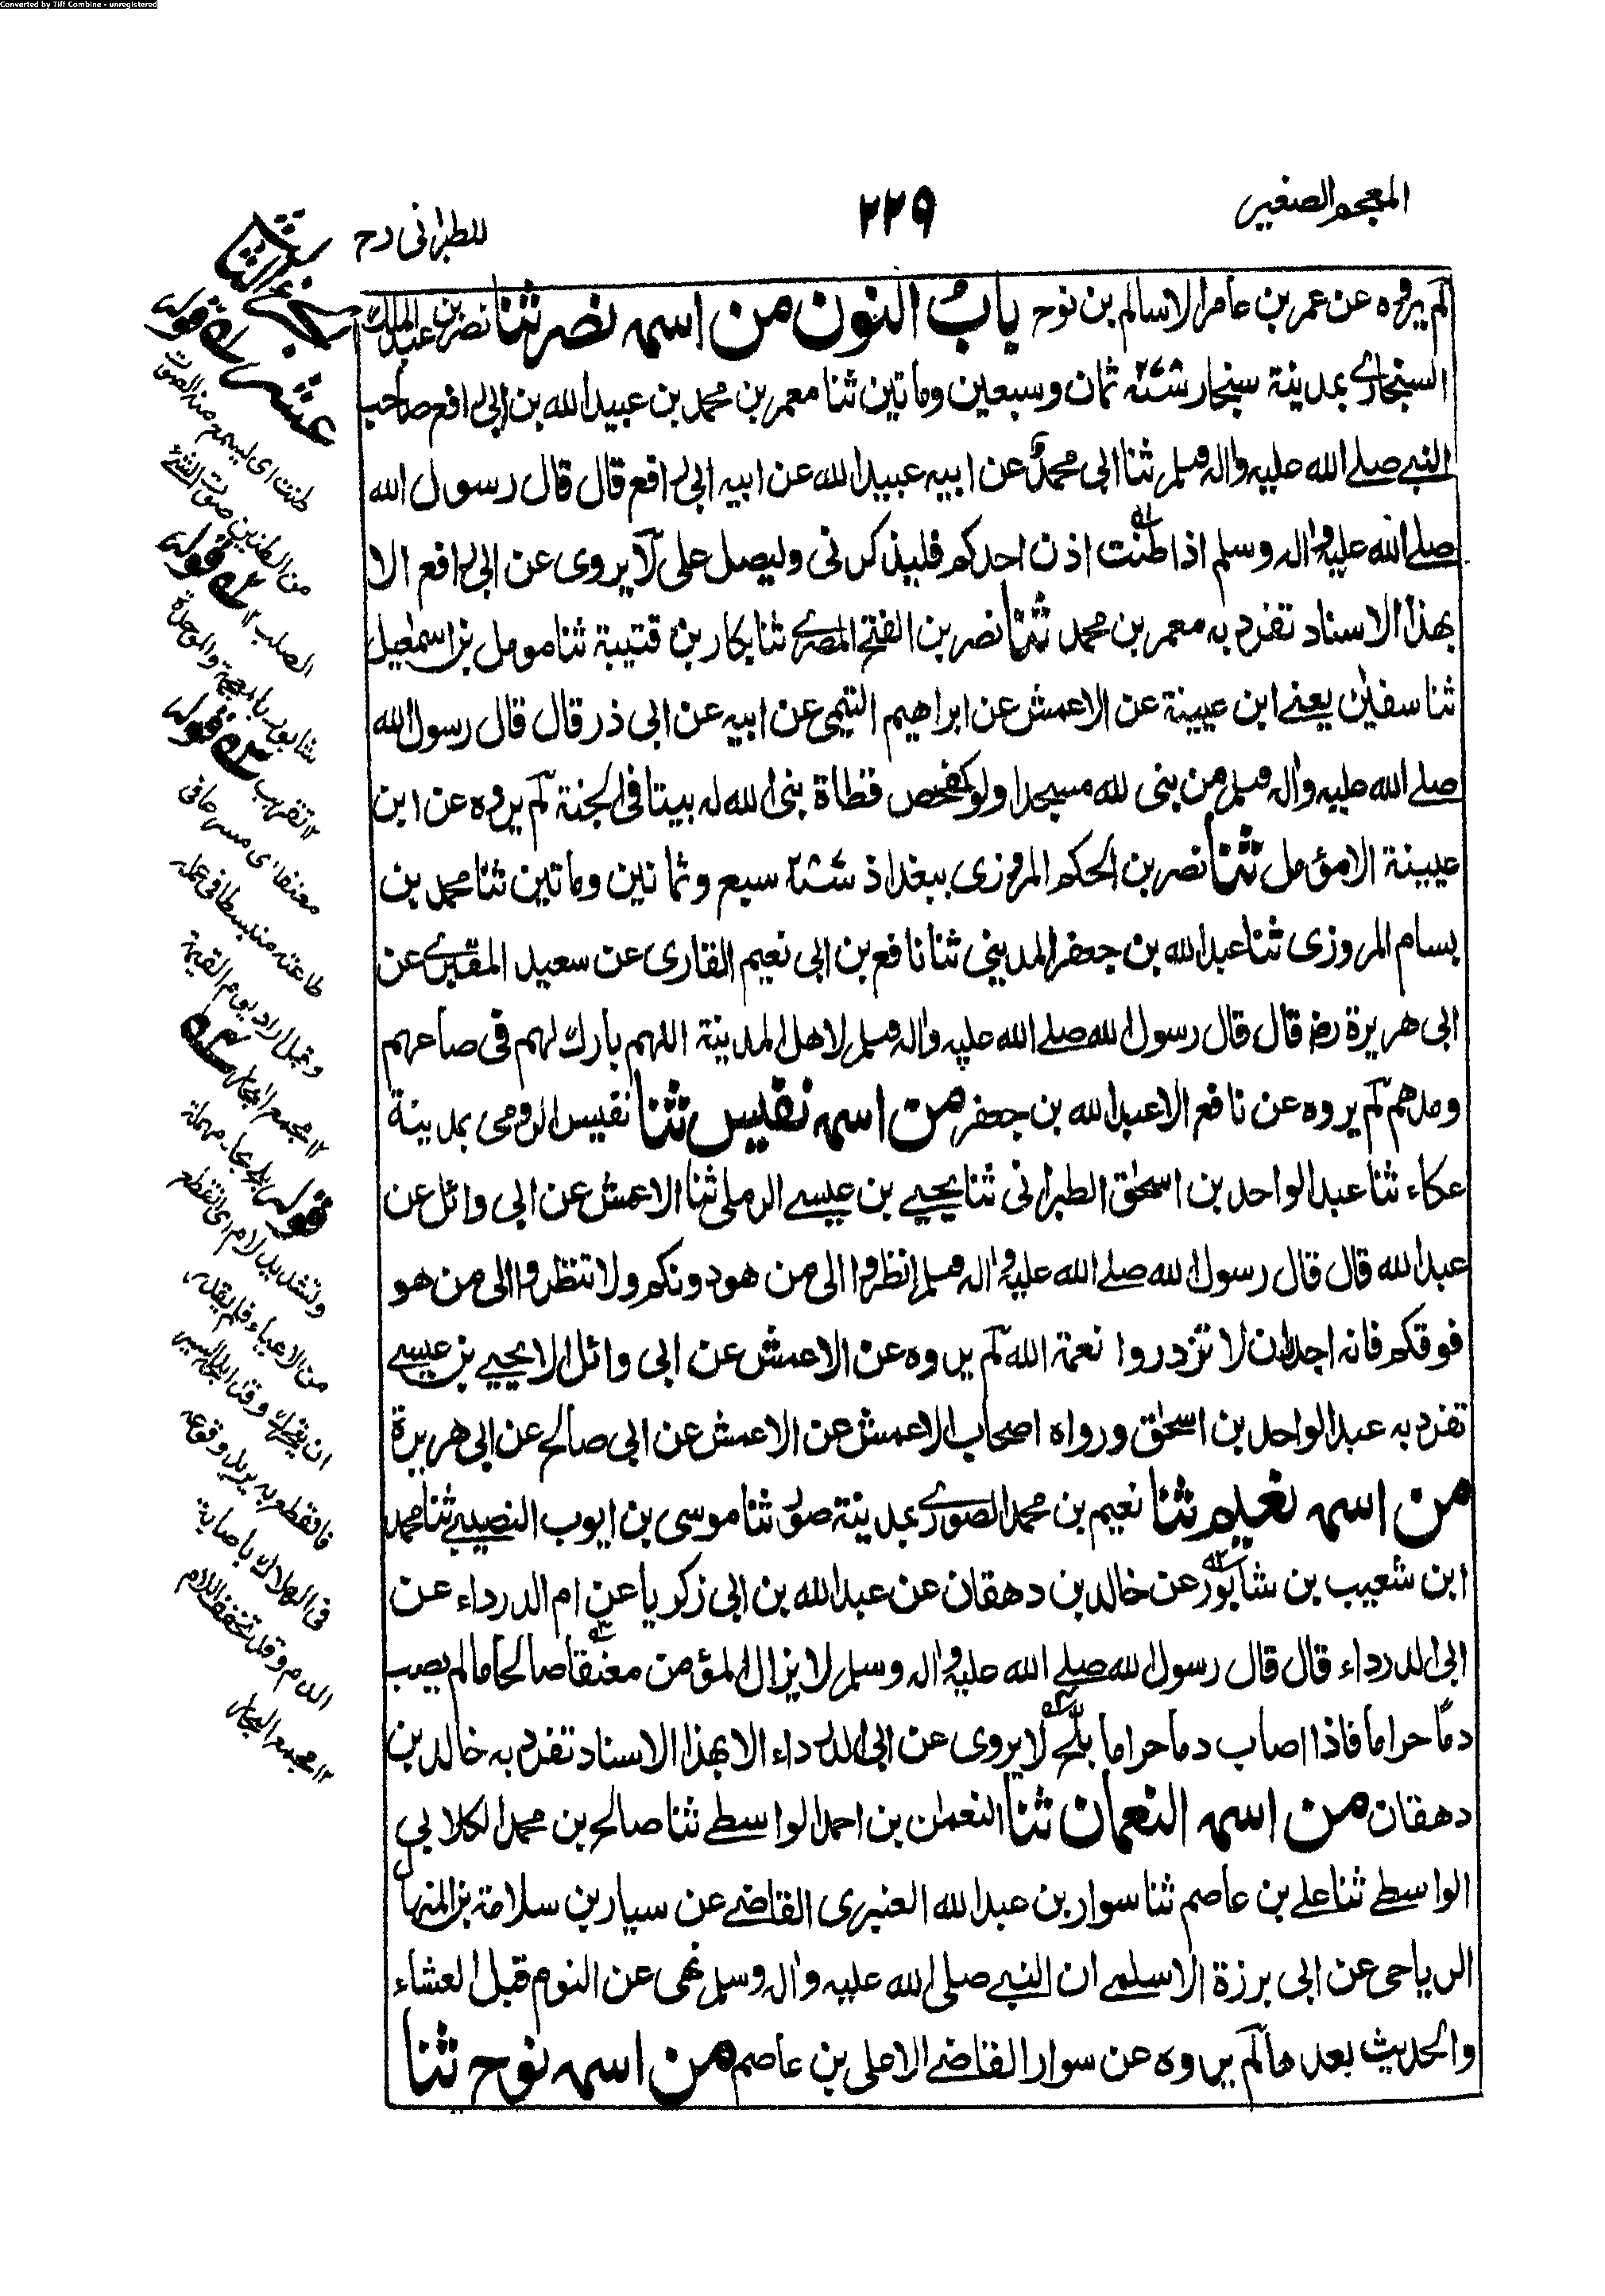 Converted by Tiff Combine - unregistered
المعجم الصغير
٢٢٩
للطبرانی رح
لم يروه عن عمر بن عامر الا سالم بن نوح باب النون من اسمه نصر ثنا نصر بن عبد الملك
السنجاري بمدينة سنجار سنة ٢٧٨ ثمان وسبعين وماتين ثنا معمر بن محمد بن عبيد الله بن ابي رافع صاحب
النبي صلے الله عليه واله وسلم ثنا ابی محمد عن ابيه عبيد الله عن ابيه ابي رافع قال قال رسول الله
صلے الله عليه واله وسلم اذا طنت اذن احدكم فليذكرنی وليصل علی لا يروی عن ابي رافع الا
بهذا الاسناد تفرد به معمر بن محمد ثنا نصر بن الفتح المصرے ثنا بكار بن قتيبة ثنا مومل بن اسمعيل
ثنا سفين يعنے ابن عيينة عن الاعمش عن ابراهيم التيمی عن ابيه عن ابی ذر قال قال رسول الله
صلے الله عليه واله وسلم من بنی لله مسجدا ولو كمفحص قطاة بنی الله له بيتا فی الجنة لم يروه عن ابن
عيينة الا مؤمل ثنا نصر بن الحكم المروزی ببغداذ سنة ٢٨٧ سبع وثمانين وماتين ثنا محمد بن
بسام المروزی ثنا عبد الله بن جعفر المدينی ثنا نافع بن ابی نعيم القاری عن سعيد المقبرے عن
ابی هريرة رض قال قال رسول الله صلے الله عليه واله وسلم لاهل المدينة اللهم بارك لهم فی صاعهم
ومدهم لم يروه عن نافع الا عبد الله بن جعفر من اسمه نفيس ثنا نفيس الرومی بمدينة
عكاء ثنا عبد الواحد بن اسحق الطبرانی ثنا يحيے بن عيسے الرملی ثنا الاعمش عن ابی وائل عن
عبد الله قال قال رسول الله صلے الله عليه واله وسلم انظروا الی من هو دونكم ولا تنظروا الی من هو
فوقكم فانه اجدر ان لا تزدروا نعمة الله لم يروه عن الاعمش عن ابی وائل الا يحيے بن عيسے
تفرد به عبد الواحد بن اسحق ورواه اصحاب الاعمش عن الاعمش عن ابی صالح عن ابی هريرة
من اسمه نعيم ثنا نعيم بن محمد الصورے بمدينة صور ثنا موسی بن ايوب النصيبے ثنا محمد
ابن شعيب بن شابور عن خالد بن دهقان عن عبد الله بن ابی زكريا عن ام الدرداء عن
ابی الدرداء قال قال رسول الله صلے الله عليه واله وسلم لا يزال المؤمن معنقا صالحا ما لم يصب
دما حراما فاذا اصاب دما حراما بلح لا يروی عن ابی الدرداء الا بهذا الاسناد تفرد به خالد بن
دهقان من اسمه النعمان ثنا النعمن بن احمد الواسطے ثنا صالح بن محمد الكلابی
الواسطے ثنا علے بن عاصم ثنا سوار بن عبد الله العنبری القاضے عن سيار بن سلامة بن المنهال
الرياحی عن ابی برزة الاسلمے ان النبے صلی الله عليه واله وسلم نهی عن النوم قبل العشاء
والحديث بعدها لم يروه عن سوار القاضے الا علی بن عاصم من اسمه نوح ثنا
الجزء الثانی
عشر
قوله
طنت ای ليسمع منه الصوت
من الطنين صوت الشئ
الصلب ١٢ قوله
شابور بالمعجمة والموحدة
١٢ تقريب قوله
معنقا ای مسرعا فی
طاعته منبسطا فی عمله
وقيل اراد يوم القيمة
١٢ مجمع البحار
قوله بلح بحاء مهملة
وتشديد لام ای انقطع
من الاعياء فلم يقدر
ان يتحرك وقد ابلحه السير
فانقطع به يريد وقوعه
فی الهلاك باصابة
الدم وقد تخفف اللام
١٢ مجمع البحار